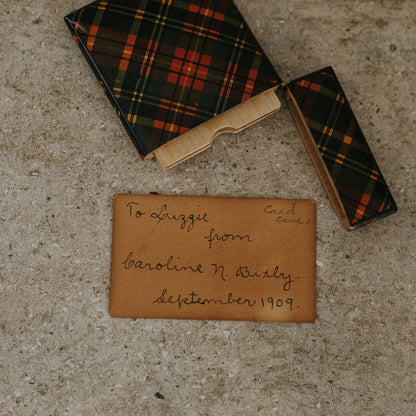 To Lizzie
Card
Case.
from
Caroline N. Buxby.
September 1909.